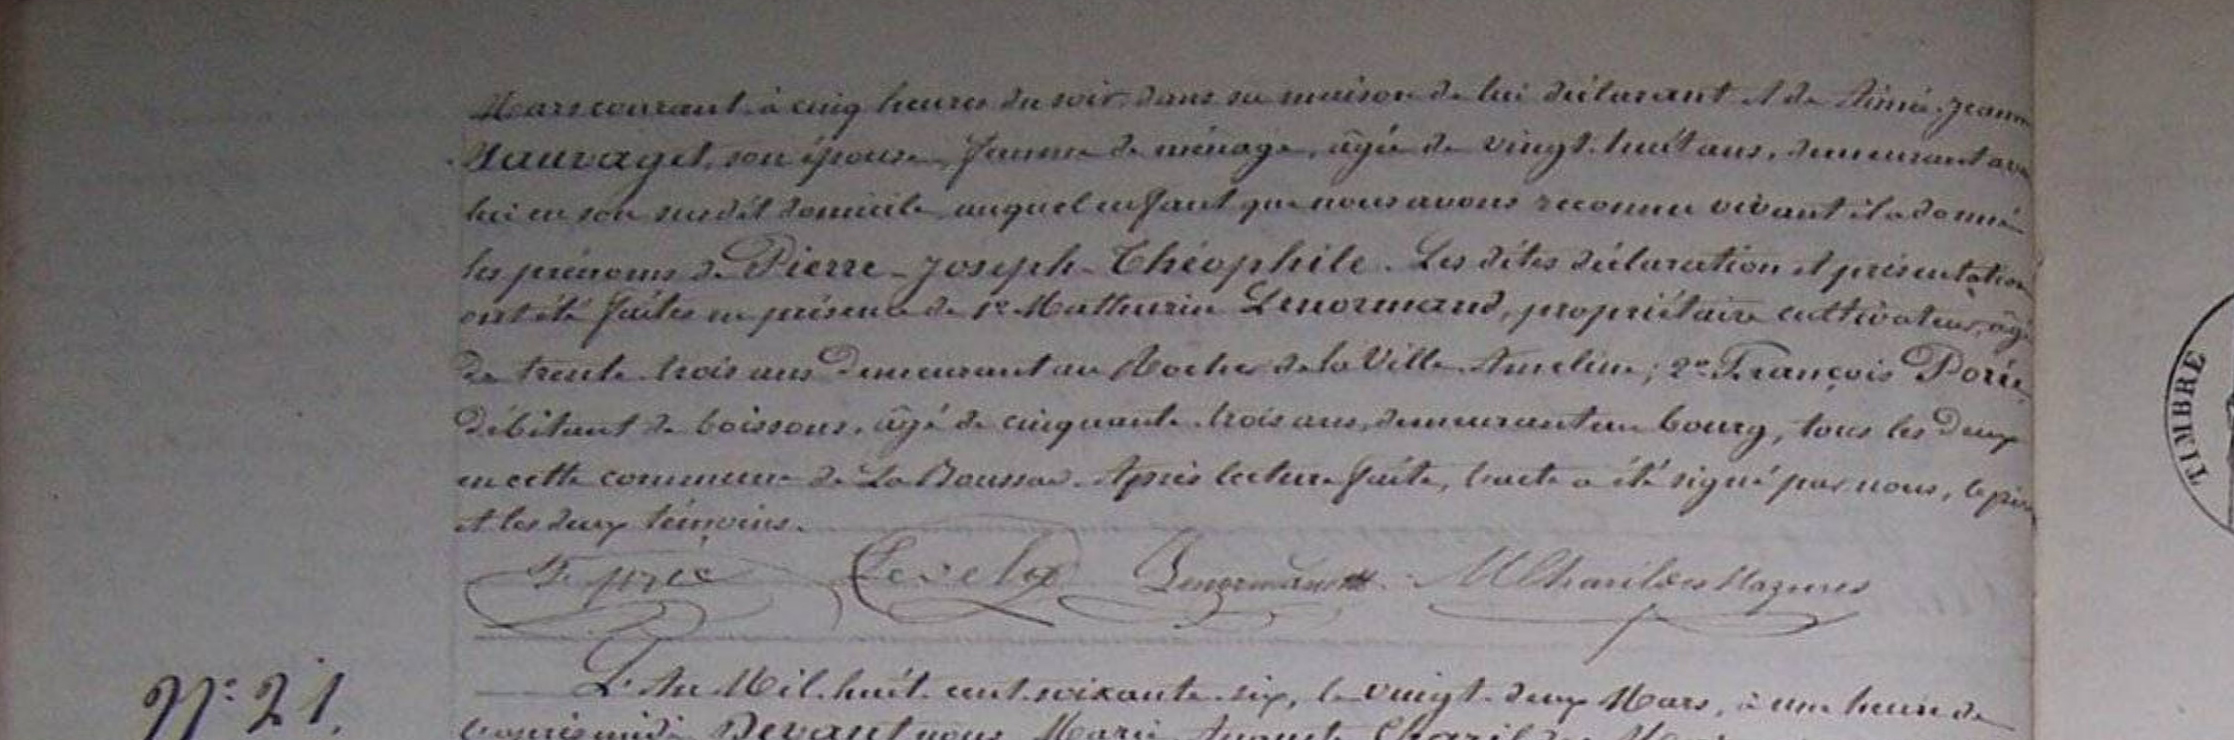 Mars courant à cinq heures du soir, dans sa maison de lui déclarant et de Aimée Jeanne
Sauvaget, son épouse, femme de ménage, âgée de vingt-huit ans, demeurant avec
lui en son susdit domicile, auquel enfant que nous avons reconnu vivant il a donné
les prénoms de Pierre-Joseph-Théophile. Les dites déclaration et présentation
ont été faites en présence de 1º Mathurin Lenormand, propriétaire cultivateur, âgé
de trente-trois ans Demeurant au Rocher de la Ville Ameline; 2º François Porée,
débitant de boissons, âgé de cinquante-trois ans, demeurant au bourg, tous les Deux
en cette commune de La Boussac. Après lecture faite, l'acte a été signé par nous, le père
et les deux témoins.
F. porée Lenormand M Charil des Mazures
Nº 21.
L'An Mil huit cent soixante-six, le vingt-deux Mars, à une heure de
l'après midi Devant nous Marie Auguste Charil des
TIMBRE